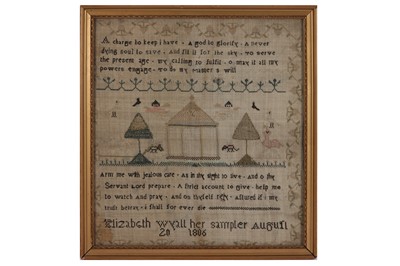 A charge to keep i have - A god to glorify - A never
dying soul to save - and fit it for the sky - to serve
the present age - my calling to fulfil - o may it all my
powers engage - to do my master s will
Arm me with jealous care - As in thy sight to live - And o thy
Servant Lord prepare - A strict account to give - help me
to watch and pray - and on thyself rely - Assured if i my
trust betray - i shall for ever die
Elizabeth Wyall her sampler August
20 1806